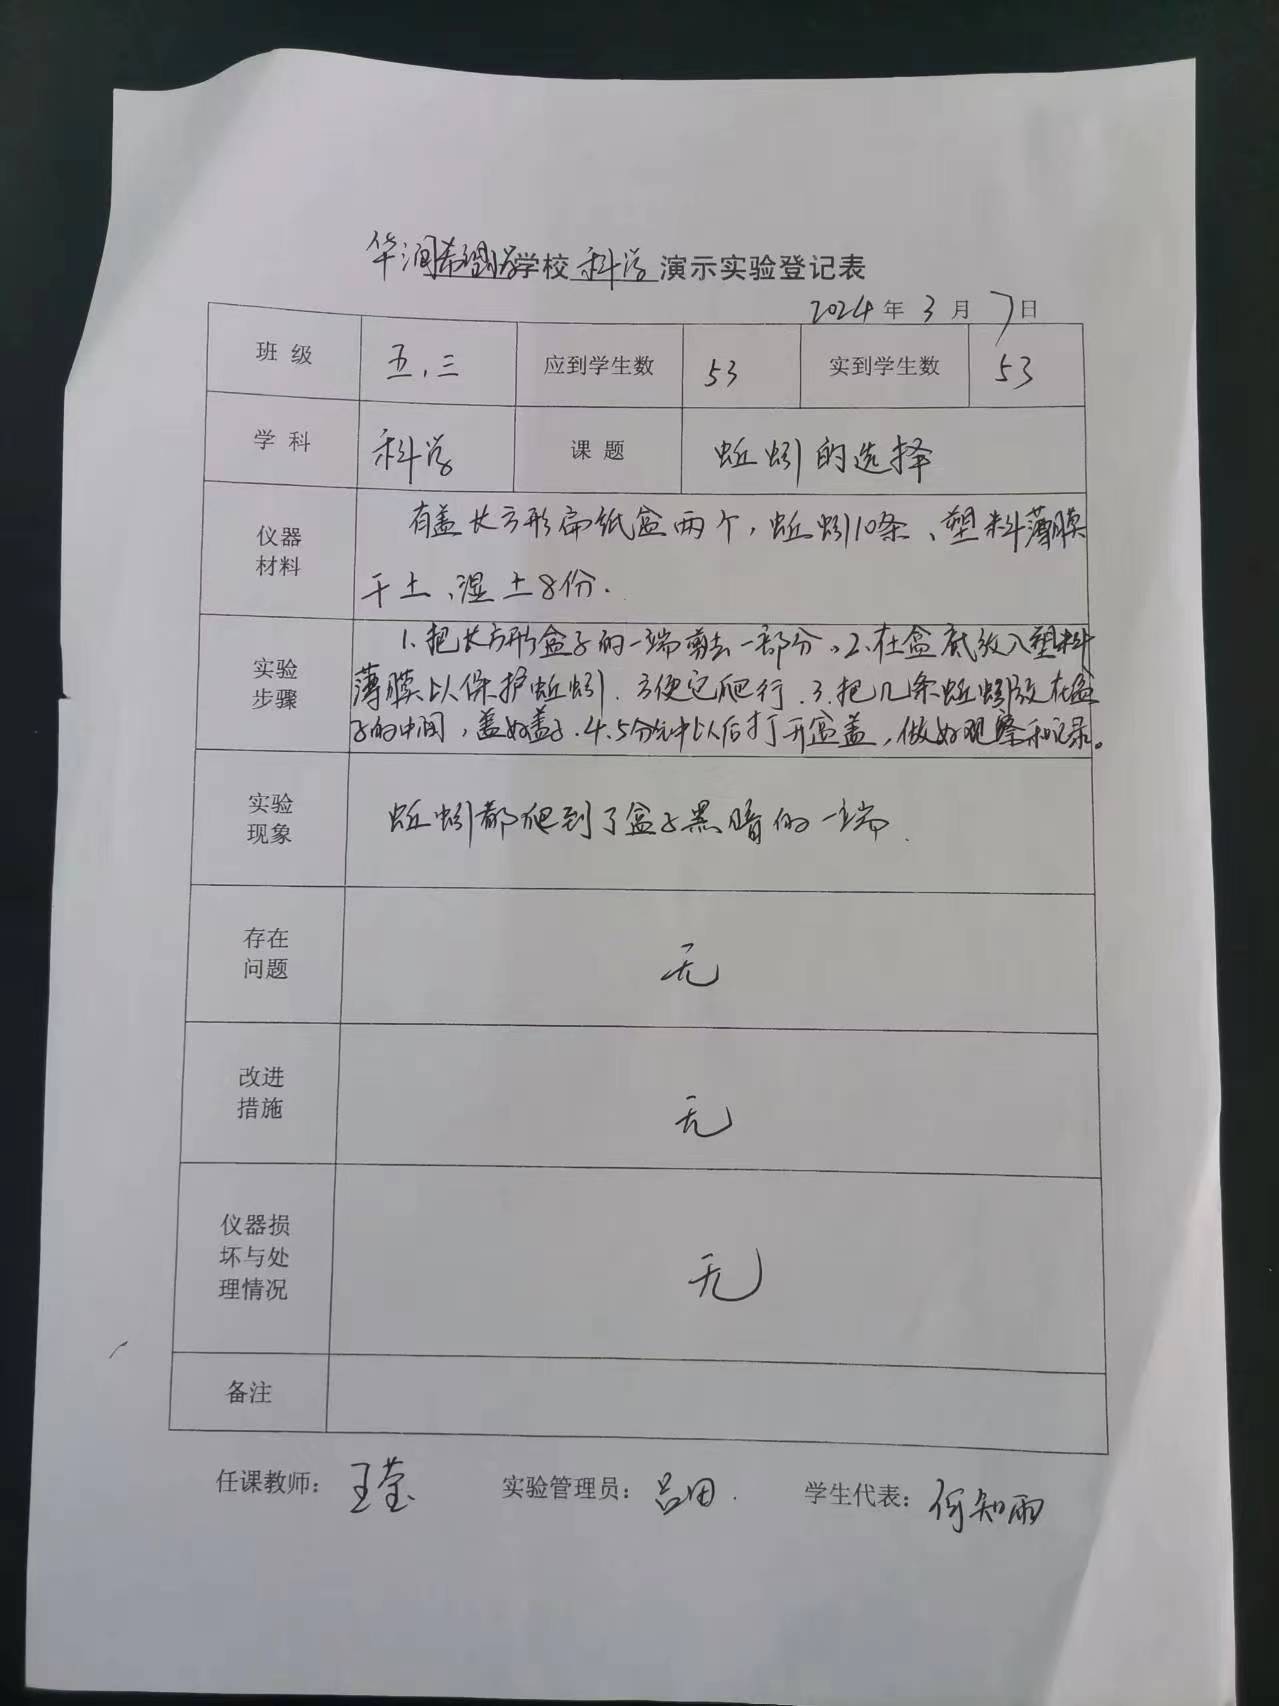 华润希望小学学校 科学 演示实验登记表
2024 年 3 月 7 日
班 级 五.三 应到学生数 53 实到学生数 53
学 科 科学 课 题 蚯蚓的选择
仪器材料 有盖长方形扁纸盒两个，蚯蚓10条、塑料薄膜
干土、湿土8份.
实验步骤 1.把长方形盒子的一端剪去一部分。2.在盒底放入塑料
薄膜以保护蚯蚓.方便它爬行.3.把几条蚯蚓放在盒
子的中间，盖好盖子.4.5分钟以后打开盒盖，做好观察和记录。
实验现象 蚯蚓都爬到了盒子黑暗的一端.
存在问题 无
改进措施 无
仪器损坏与处理情况 无
备注
任课教师：王莹 实验管理员：吕田. 学生代表：何知雨